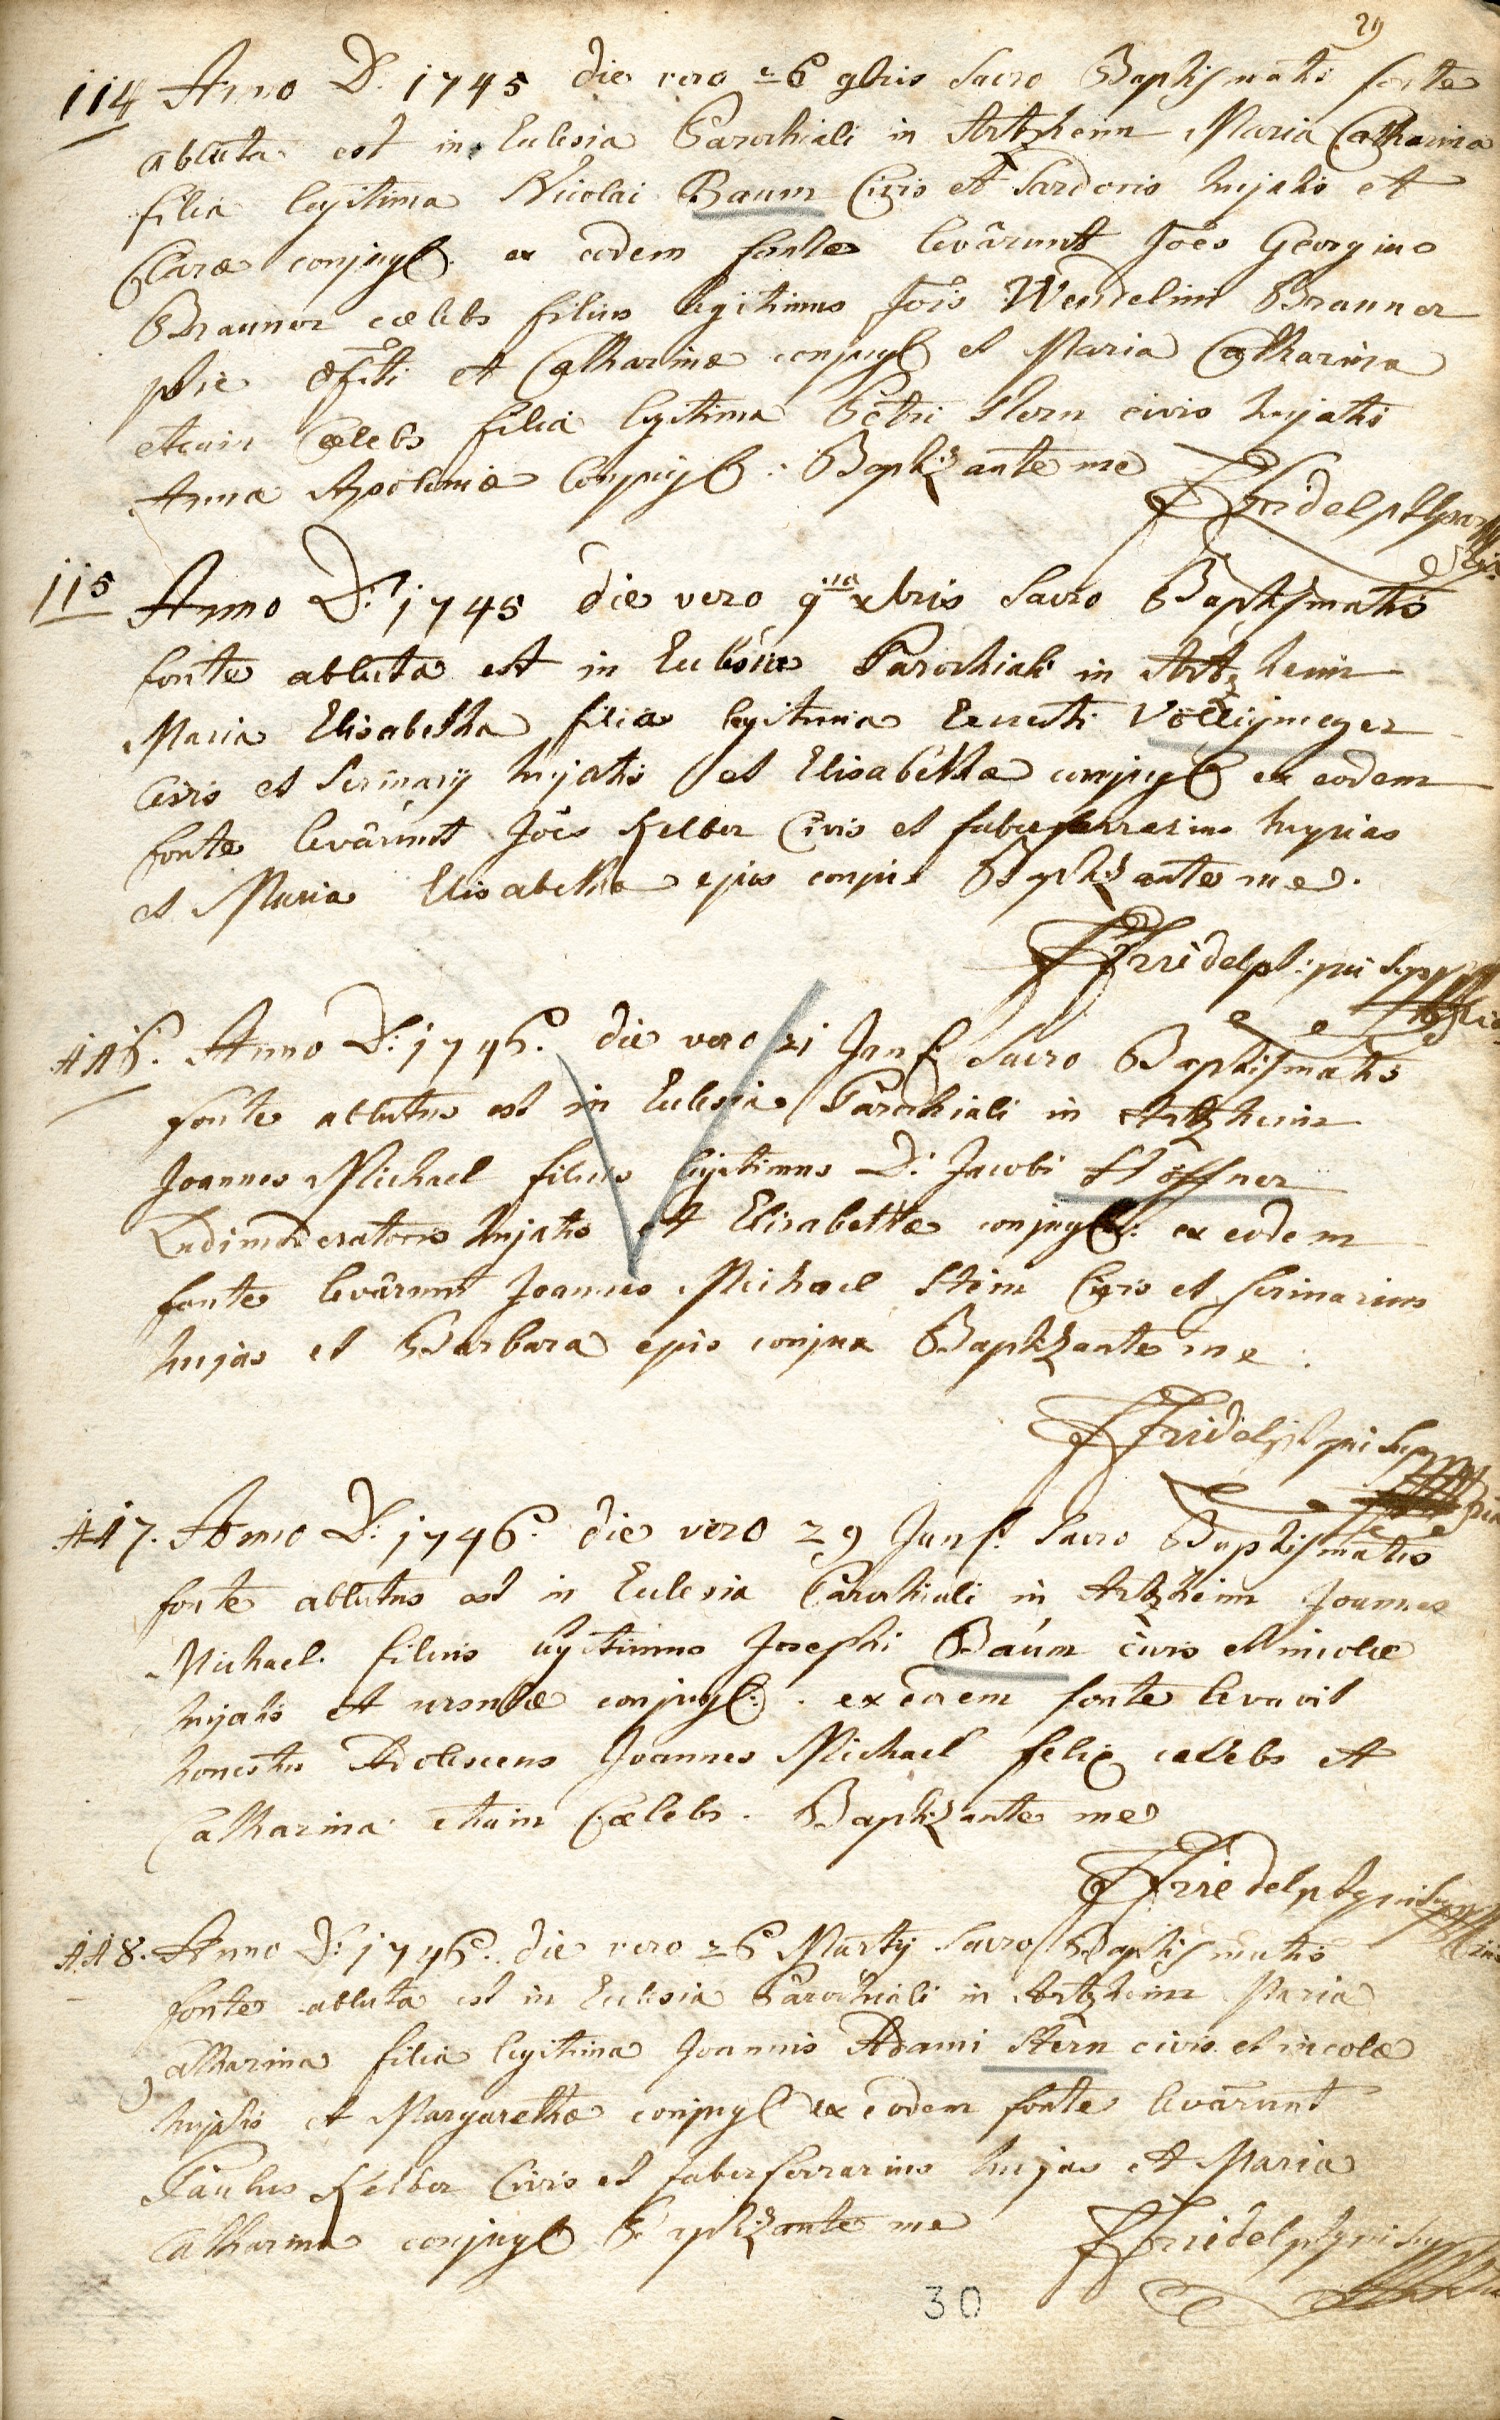 29
114 Anno D. 1745 die vero 26 9bris Sacro Baptismatis fonte
abluta est in Eclesia Parochiali in Artzheim Maria Catharina
filia legitima Nicolai Baum Civis et Sardoris hujatis et
Claræ conjug. ex eodem fonte levârunt Joês Georgius
Brauner cœlebs filius legitimus Jois Wendelini Brauner
piè dfti et Catharinæ conjug et Maria Catharina
etiam Cœlebs filia legitima Petri Stern civis hujatis
Anna Apoloniæ Conjug: Baptizante me
Fridelph
115 Anno D: 1745 die vero 9na xbris Sacro Baptismatis
fonte abluta est in Eclesiæ Parochiali in Artzheim
Maria Elisabetha filia legitima Ernesti
Civis et Serinary hujatis et Elisabethæ conjug ex eodem
fonte levârunt Joês Kelber Civis et faberferrarius hujas
et Maria Elisabetha ejus conjux Baptizante me.
Fridelph: pri Supp
116. Anno D: 1746. die vero 21 Jan Sacro Baptismatis
fonte ablutus est in Eclesia Parochiali in Artzheim
Joannes Michael filius legitimus D: Jacobi Stöffner
Ludimoderatoris hujatis et Elisabethæ conjug: ex eodem
fonte levârunt Joannes Michael Stein Civis et serinarius
hujas et Barbara ejus conjux Baptizante me.
Fridelph pri Supp
117. Anno D: 1746. die vero 29 Jan Sacro Baptismatis
fonte ablutus est in Eclesia Parochiali in Artzheim Joannes
Michael filius legitimus Josephi Baum civis et incolæ
hujatis et ursulæ conjug: . ex eodem fonte levavit
honestus Adolescens Joannes Michael felix cælebs et
Catharina etiam Cœlebs. Baptizante me
Friedelph
118. Anno D: 1746. die vero 26 Martij Sacro Baptismatis
fonte abluta est in Eclesia Parochiali in Artzheim Maria
Catharina filia legitima Joannis Adami Stern civis et incolæ
hujatis et Margarethæ conjug ex eodem fonte levârunt
Paulus Kelber Civis et faberferrarius hujas et Maria
Catharina conjug Baptizante me
Fridelph
30